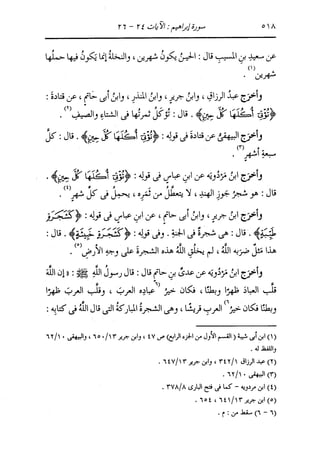 ٥١٨ سورة إبراهيم : الآيات ٢٤ - ٢٦
عن سعيدِ بنِ المسيبِ قال : الحينُ يكونُ شهرين ، والنخلةُ إنما يكونُ فيها حملُها
شهرين(١) .
وأخرَج عبدُ الرزاقِ ، وابنُ جريرٍ ، وابنُ المنذرِ ، وابنُ أبى حاتمٍ ، عن قتادةَ :
﴿تُؤْتِي أُكُلَهَا كُلَّ حِينٍ﴾ . قال : تُؤكلُ ثمرتُها فى الشتاءِ والصيفِ(٢) .
وأخرَج البيهقىُّ عن قتادةَ فى قولِه : ﴿تُؤْتِي أُكُلَهَا كُلَّ حِينٍ﴾ . قال : كلَّ
سبعةِ أشهرٍ(٣) .
وأخرَج ابنُ مَرْدُويَه عن ابنِ عباسٍ فى قولِه : ﴿تُؤْتِي أُكُلَهَا كُلَّ حِينٍ﴾ .
قال : هو شجرُ جوزِ الهندِ ، لا يتعطَّلُ من ثمرِه ، يحمِلُ فى كلِّ شهرٍ(٤) .
وأخرَج ابنُ جريرٍ ، وابنُ أبى حاتمٍ ، عن ابنِ عباسٍ فى قولِه : ﴿كَشَجَرَةٍ
طَيِّبَةٍ﴾ . قال : هى شجرةٌ فى الجنةِ . وفى قولِه : ﴿كَشَجَرَةٍ خَبِيثَةٍ﴾ . قال :
هذا مَثَلٌ ضرَبه اللهُ ، لم يخلُقِ اللهُ هذه الشجرةَ على وجهِ الأرضِ(٥) .
وأخرَج ابنُ مَرْدُويَه عن عدىِّ بنِ حاتمٍ قال : قال رسولُ اللهِ ﷺ : «إن اللهَ
قلَّب العبادَ ظهرًا وبطنًا ، فكان خيرُ (٦)عبادِه العربَ ، وقلَّب العربَ ظهرًا
وبطنًا فكان خيرُ(٦) العربِ قريشًا ، وهى الشجرةُ المباركةُ التى قال اللهُ فى كتابِه :
(١) ابن أبى شيبة (القسم الأول من الجزء الرابع) ص ٤٧ ، وابن جرير ٦٥٠/١٣ ، والبيهقى ٦٢/١٠
واللفظ له .
(٢) عبد الرزاق ٣٤٢/١ ، وابن جرير ٦٤٧/١٣ .
(٣) البيهقى ٦٢/١٠ .
(٤) ابن مردويه - كما فى فتح البارى ٣٧٨/٨ .
(٥) ابن جرير ٦٤١/١٣ ، ٦٥٤ .
(٦ - ٦) سقط من : م .